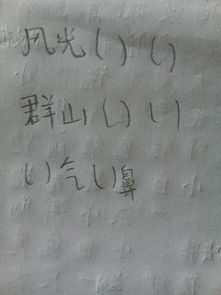 风光( )( )
群山( )( )
( )气( )鼻